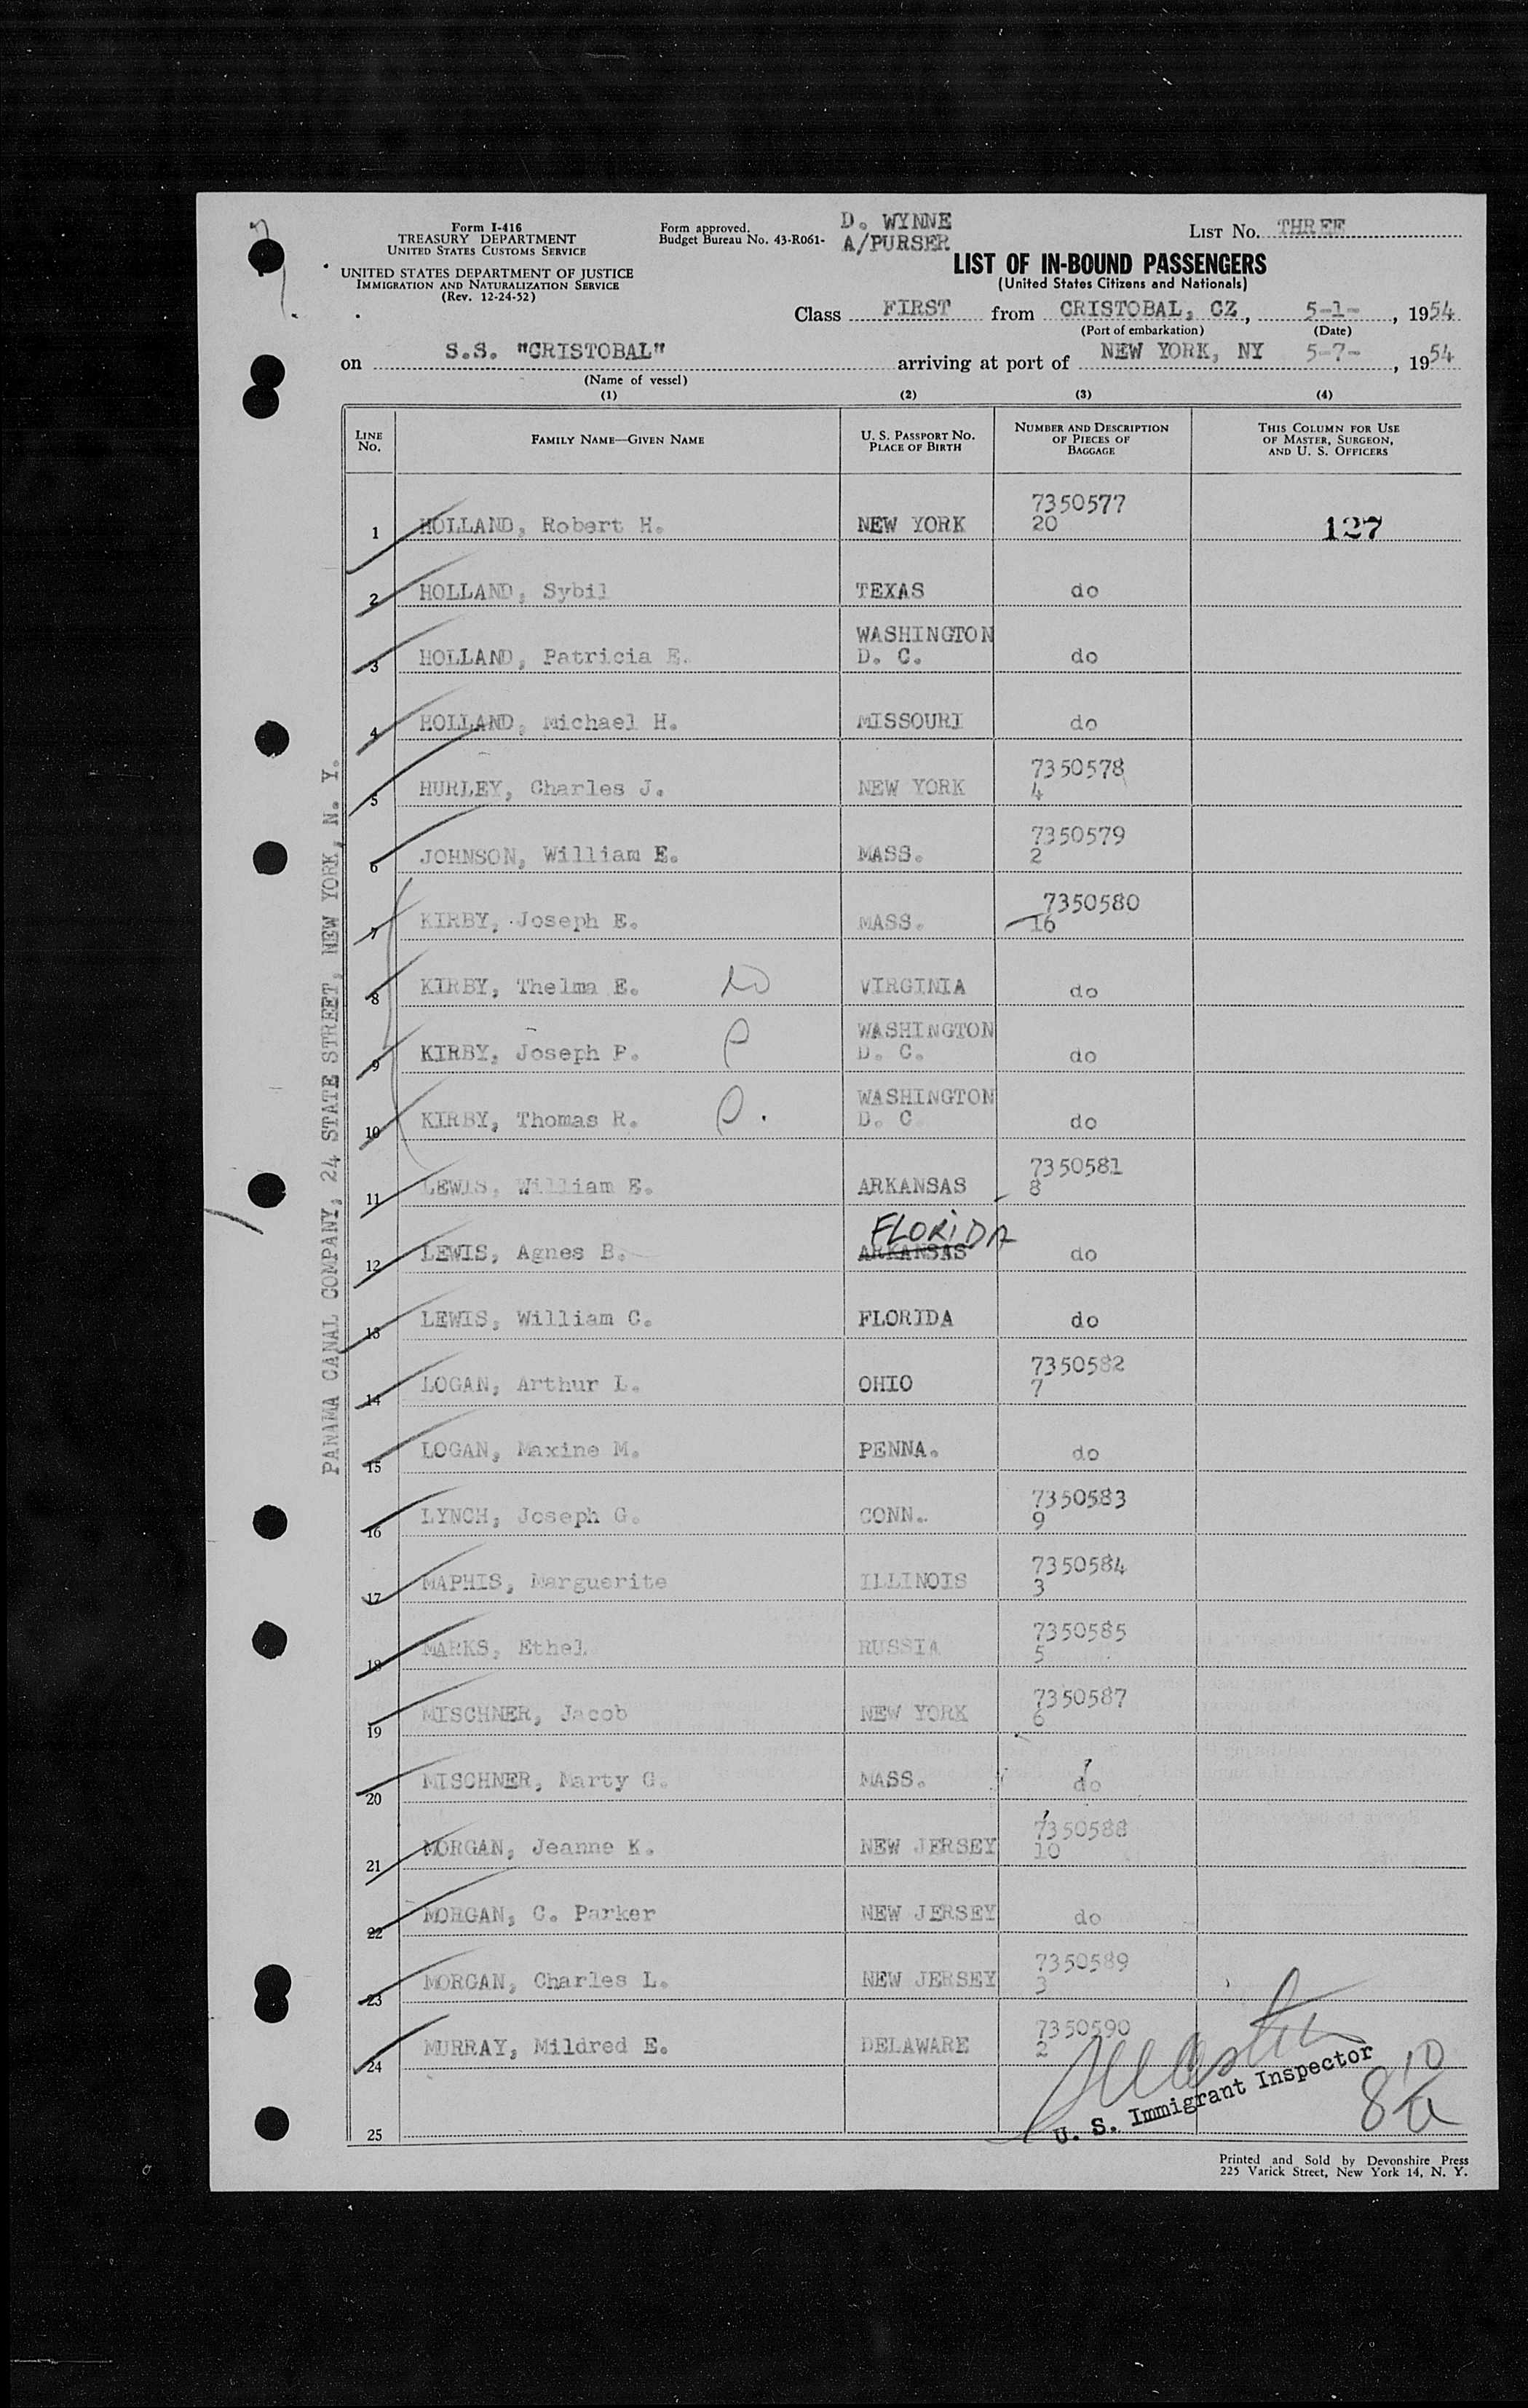 Form I-416
TREASURY DEPARTMENT
UNITED STATES CUSTOMS SERVICE
UNITED STATES DEPARTMENT OF JUSTICE
IMMIGRATION AND NATURALIZATION SERVICE
(Rev. 12-24-52)
Form approved.
Budget Bureau No. 43-R061-
D. WYNNE
A/PURSER
LIST NO. THREE
LIST OF IN-BOUND PASSENGERS
(United States Citizens and Nationals)
Class FIRST from CRISTOBAL, CZ, 5-1-, 1954
(Port of embarkation) (Date)
on S.S. "CRISTOBAL" arriving at port of NEW YORK, NY 5-7-, 1954
(Name of vessel)
(1) (2) (3) (4)
LINE NO. FAMILY NAME—GIVEN NAME U. S. PASSPORT NO. PLACE OF BIRTH NUMBER AND DESCRIPTION OF PIECES OF BAGGAGE THIS COLUMN FOR USE OF MASTER, SURGEON, AND U. S. OFFICERS
1 HOLLAND, Robert H. NEW YORK 7350577 20 127
2 HOLLAND, Sybil TEXAS do
3 HOLLAND, Patricia E. WASHINGTON D. C. do
4 HOLLAND, Michael H. MISSOURI do
5 HURLEY, Charles J. NEW YORK 7350578 4
6 JOHNSON, William E. MASS. 7350579 2
7 KIRBY, Joseph E. MASS. 7350580 16
8 KIRBY, Thelma E. VIRGINIA do
9 KIRBY, Joseph P. WASHINGTON D. C. do
10 KIRBY, Thomas R. WASHINGTON D. C do
11 LEWIS, William E. ARKANSAS 7350581 8
12 LEWIS, Agnes B. FLORIDA ARKANSAS do
13 LEWIS, William C. FLORIDA do
14 LOGAN, Arthur L. OHIO 7350582 7
15 LOGAN, Maxine M. PENNA. do
16 LYNCH, Joseph G. CONN. 7350583 9
17 MAPHIS, Marguerite ILLINOIS 7350584 3
18 MARKS, Ethel RUSSIA 7350585 5
19 MISCHNER, Jacob NEW YORK 7350587 6
20 MISCHNER, Marty G. MASS. do
21 MORGAN, Jeanne K. NEW JERSEY 7350588 10
22 MORGAN, C. Parker NEW JERSEY do
23 MORGAN, Charles L. NEW JERSEY 7350589 3
24 MURRAY, Mildred E. DELAWARE 7350590 2
25
U. S. Immigrant Inspector
PANAMA CANAL COMPANY, 24 STATE STREET, NEW YORK, N. Y.
Printed and Sold by Devonshire Press
225 Varick Street, New York 14, N. Y.